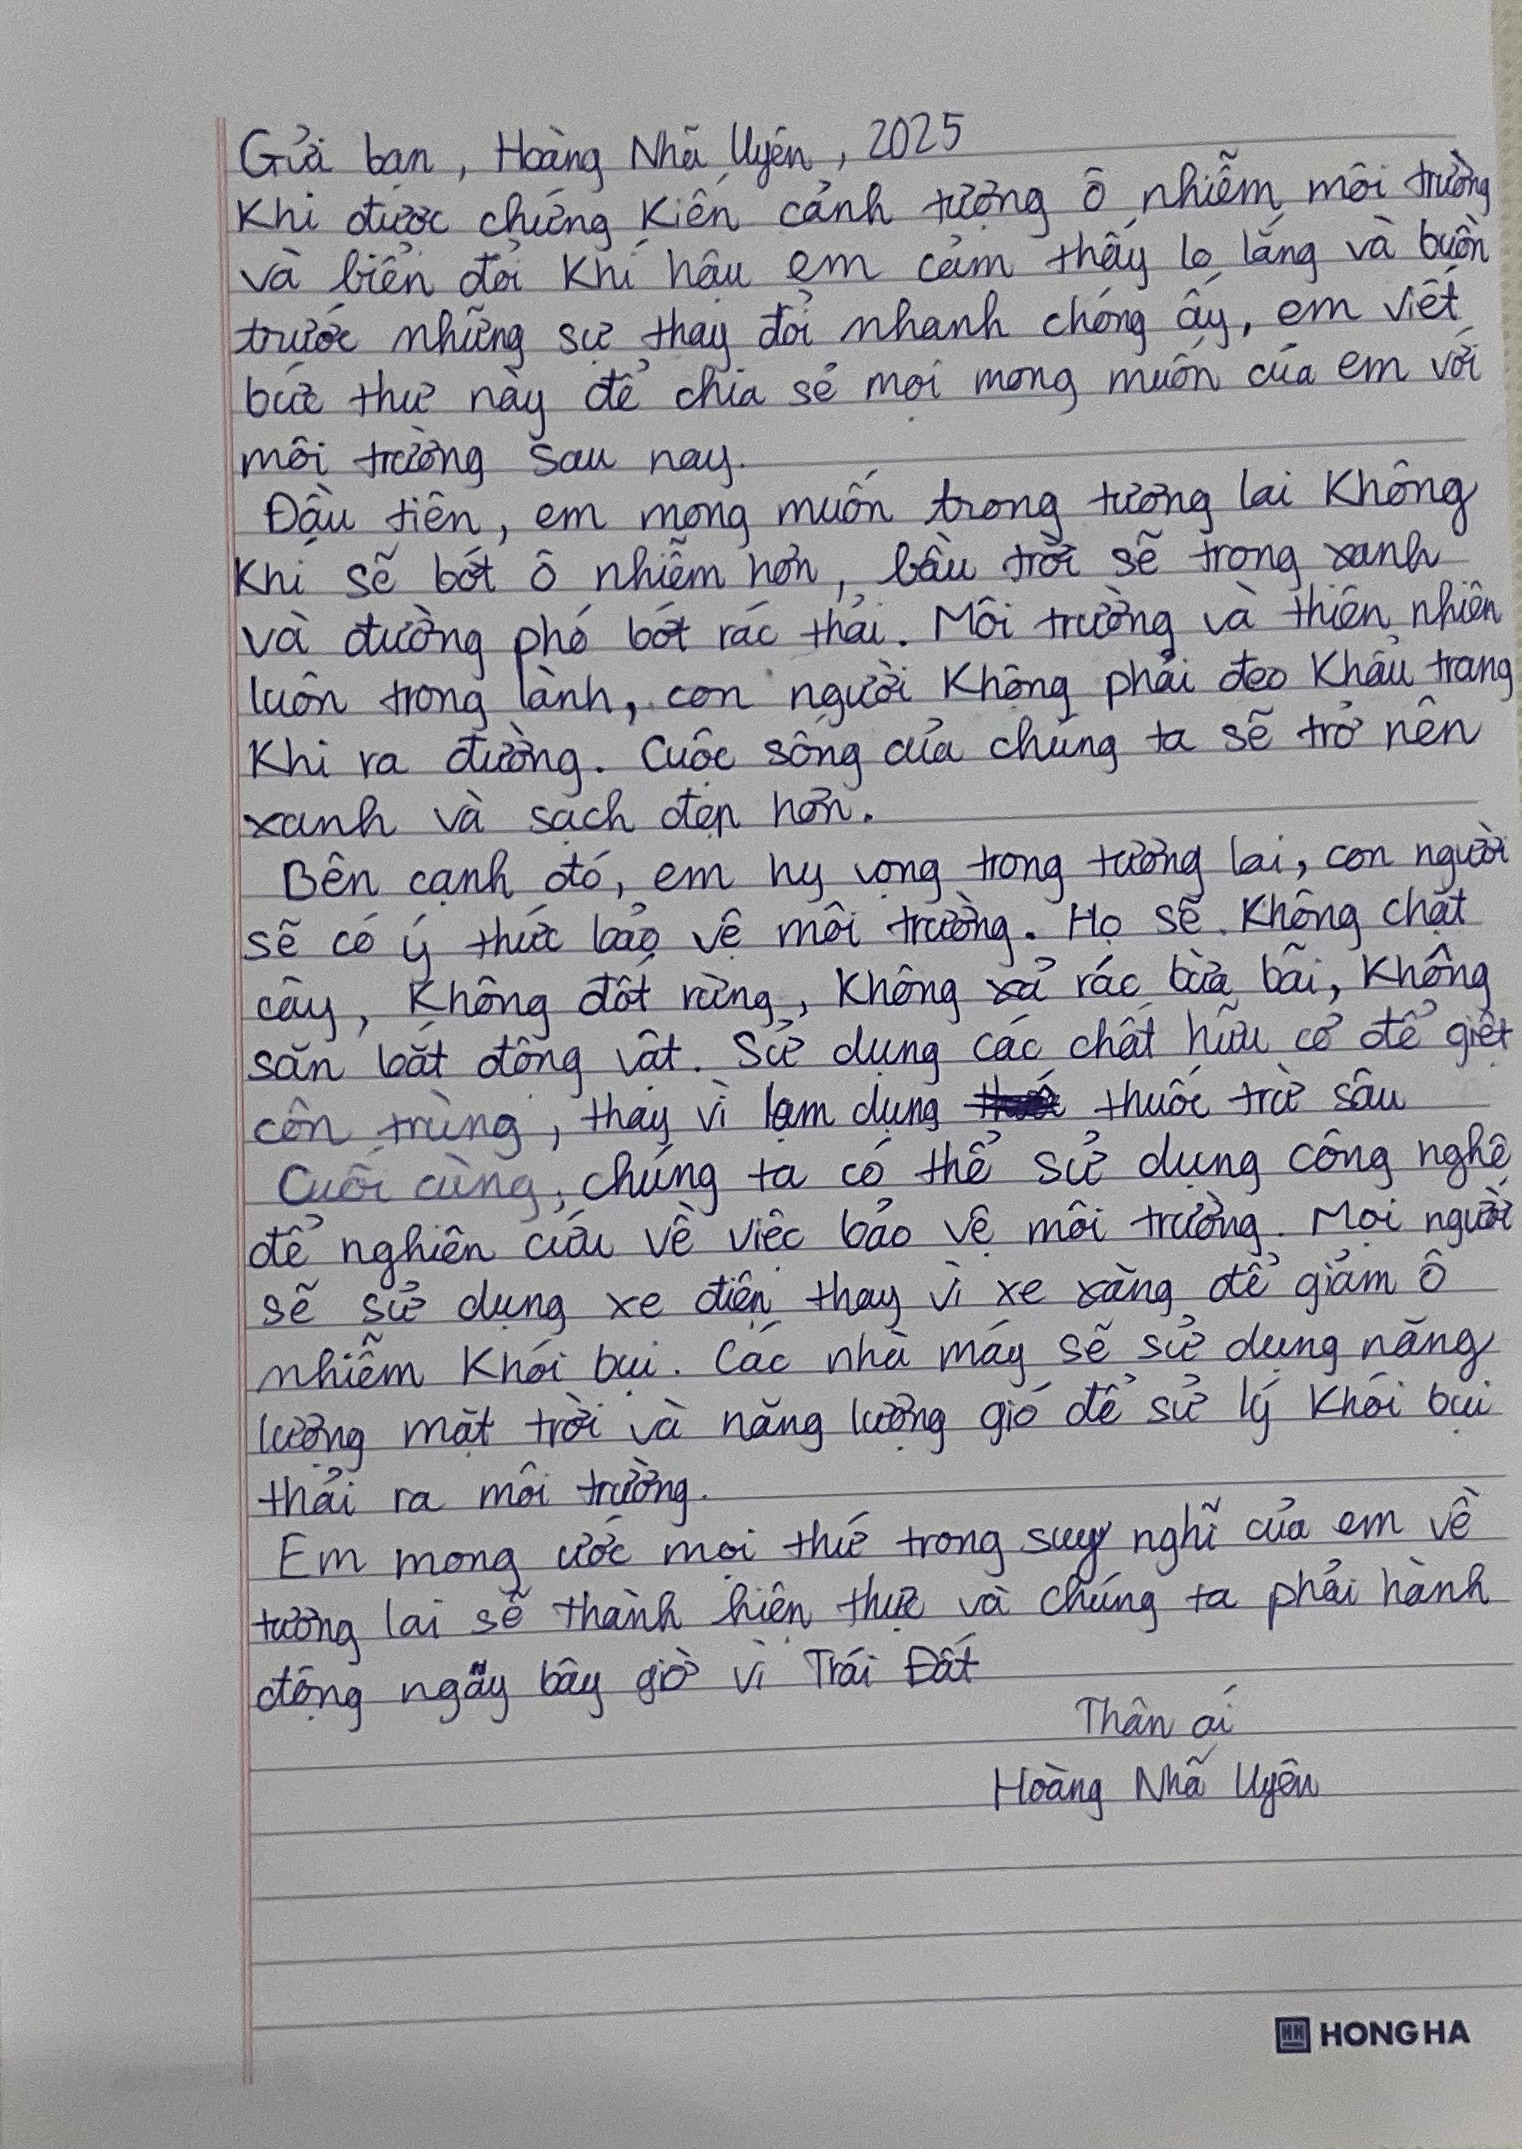 Gửi bạn, Hoàng Nhã Uyên, 2025
Khi được chứng kiến cảnh tượng ô nhiễm môi trường
và biển đổi khí hậu em cảm thấy lo lắng và buồn
trước những sự thay đổi nhanh chóng ấy, em viết
bức thư này để chia sẻ mọi mong muốn của em với
môi trường sau nay.
Đầu tiên, em mong muốn trong tương lai không
khí sẽ bớt ô nhiễm hơn, bầu trời sẽ trong xanh
và đường phố bớt rác thải. Môi trường và thiên nhiên
luôn trong lành, con người không phải đeo khẩu trang
khi ra đường. Cuộc sống của chúng ta sẽ trở nên
xanh và sạch đẹp hơn.
Bên cạnh đó, em hy vọng trong tương lai, con người
sẽ có ý thức bảo vệ môi trường. Họ sẽ không chặt
cây, không đốt rừng, không xả rác bừa bãi, không
săn bắt động vật. Sử dụng các chất hữu cơ để giết
côn trùng, thay vì lạm dụng thuốc trừ sâu
Cuối cùng, chúng ta có thể sử dụng công nghệ
để nghiên cứu về việc bảo vệ môi trường. Mọi người
sẽ sử dụng xe điện thay vì xe xăng để giảm ô
nhiễm khói bụi. Các nhà máy sẽ sử dụng năng
lượng mặt trời và năng lượng gió để sử lý khói bụi
thải ra môi trường.
Em mong ước mọi thứ trong suy nghĩ của em về
tương lai sẽ thành hiện thực và chúng ta phải hành
động ngay bây giờ vì Trái Đất
Thân ái
Hoàng Nhã Uyên
HONG HA